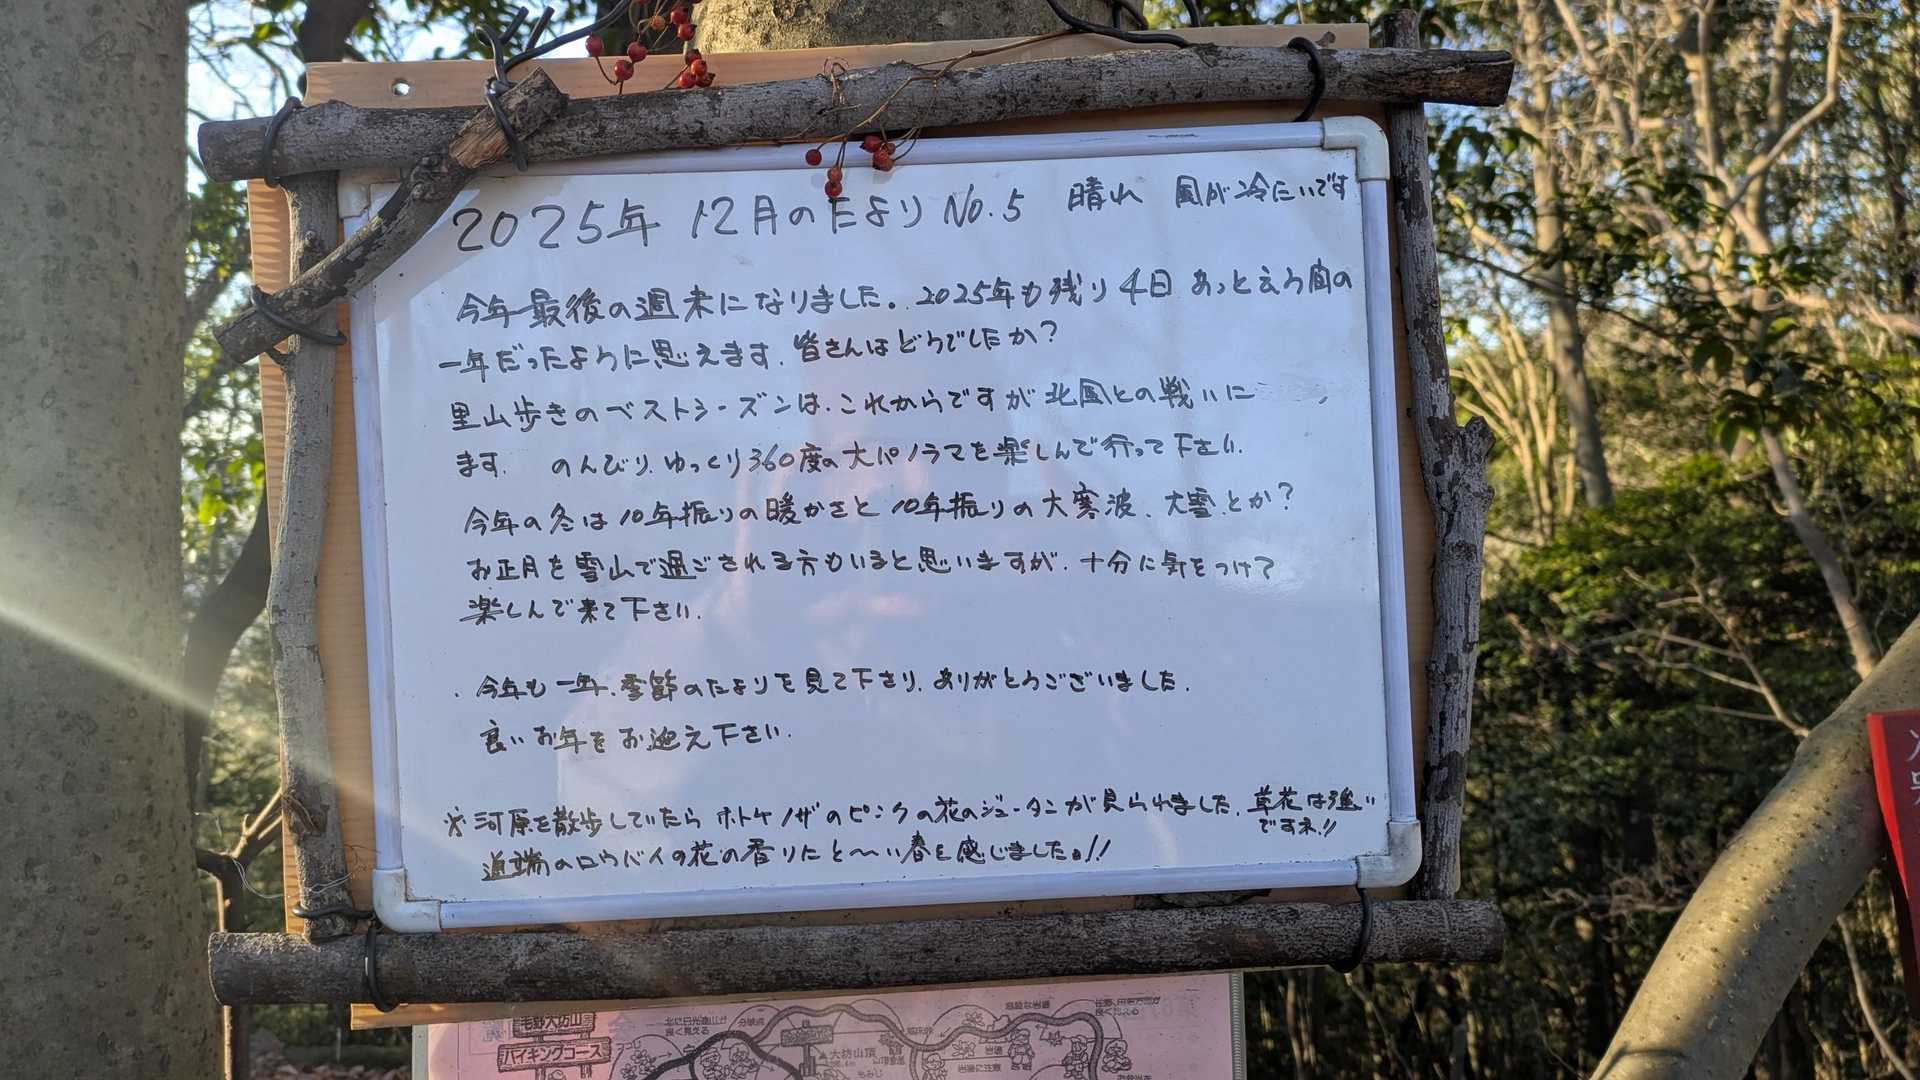 2025年 12月のたより No.5 晴れ 風が冷たいです
今年最後の週末になりました。2025年も残り4日 あっと云う間の
一年だったように思えます。皆さんはどうでしたか?
里山歩きのベストシーズンは、これからですが北風との戦いに
ます。 のんびり、ゆっくり360度の大パノラマを楽しんで行って下さい。
今年の冬は10年振りの暖かさと10年振りの大寒波、大雪とか?
お正月を雪山で過ごされる方もいると思いますが、十分に気をつけて
楽しんで来て下さい。
・今年も一年、季節のたよりを見て下さり、ありがとうございました。
良いお年をお迎え下さい。
※河原を散歩していたらホトケノザのピンクの花のジュータンが見られました。草花は強い
ですネ!!
道端のロウバイの花の香りにと〜い春を感じました。!!
毛野大坊山
ハイキングコース
北に日光連山が
良く見える
分岐点
大坊山頂
つつじ
もみじ
岩場
岩場に注意